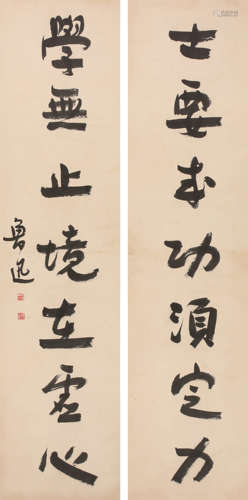 士要求功須定力
學無止境在虛心
魯迅